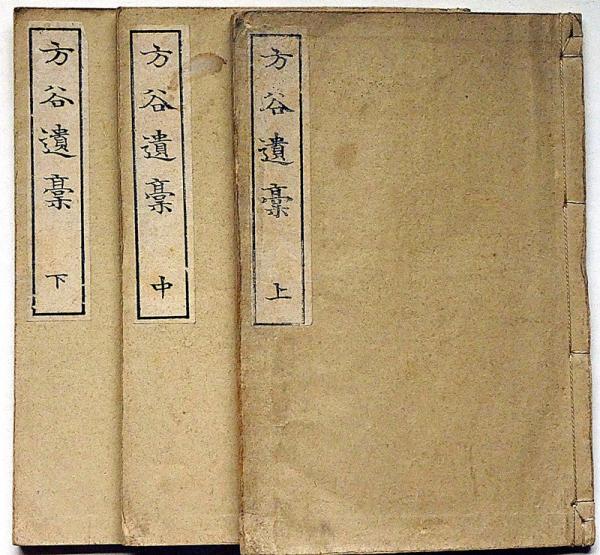 方谷遺稾 上
方谷遺稾 中
方谷遺稾 下